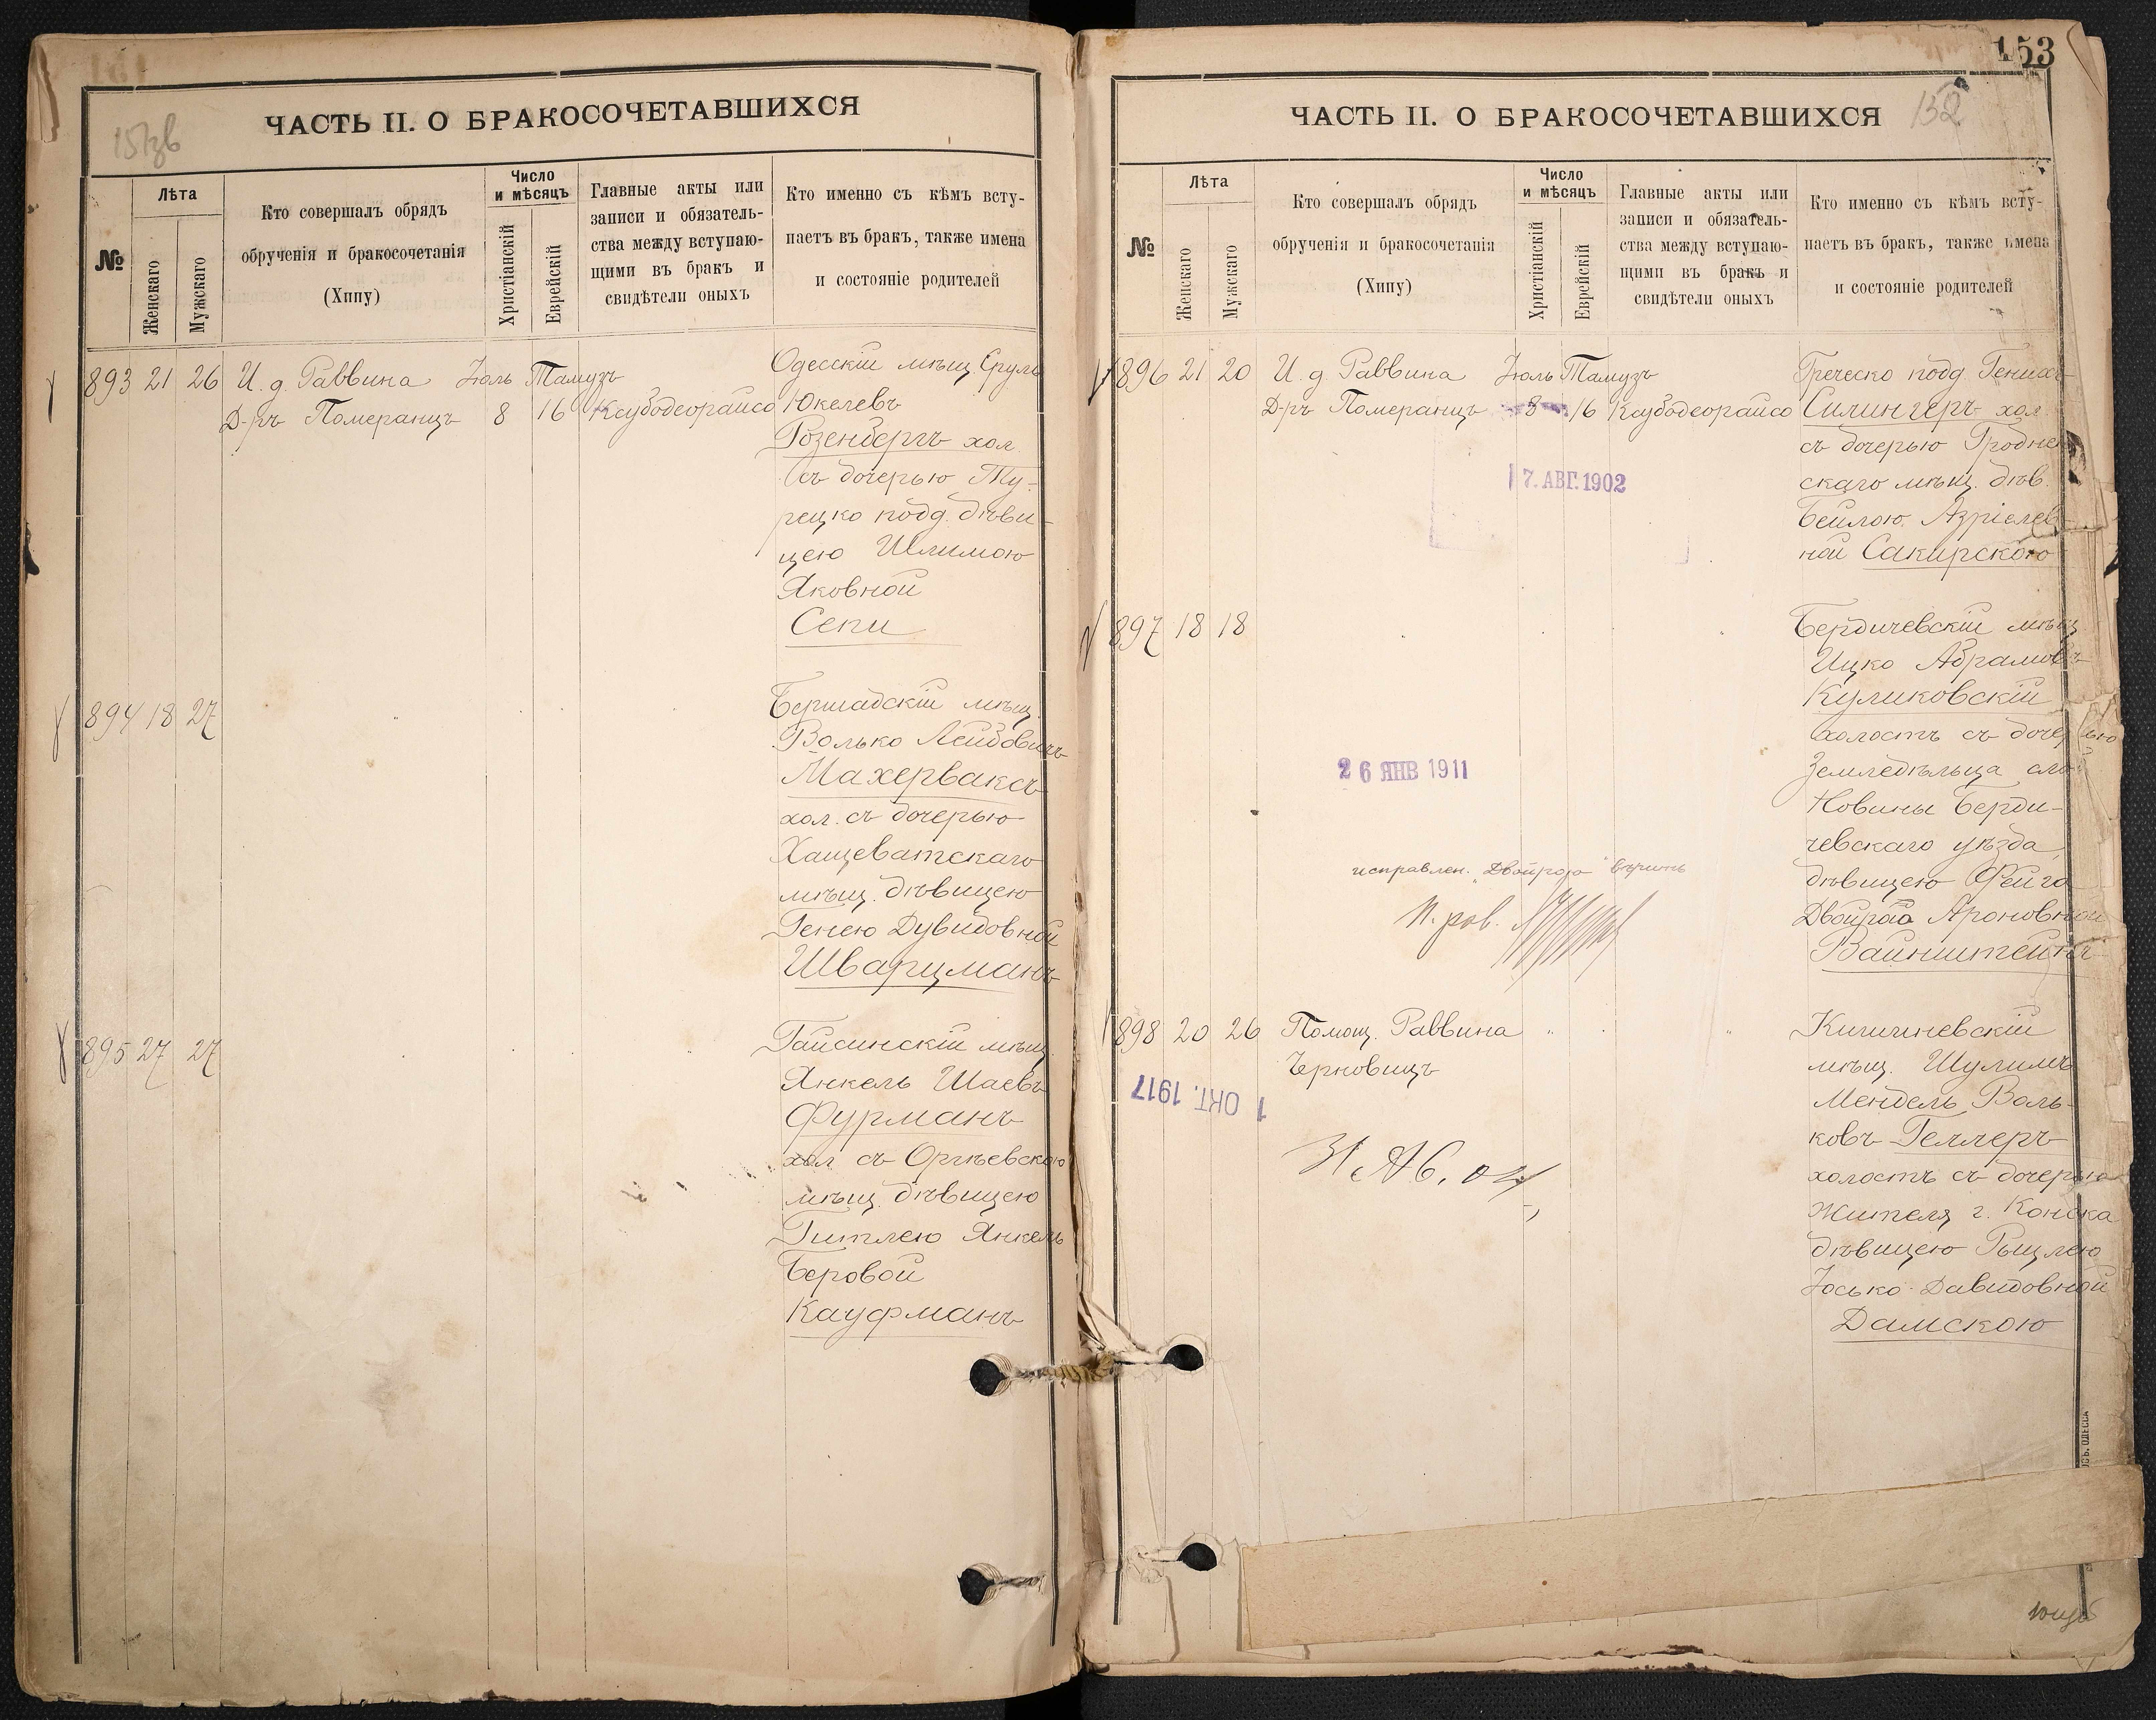 ЧАСТЬ II. О БРАКОСОЧЕТАВШИХСЯ
№
Лѣта
Женскаго
Мужскаго
Кто совершалъ обрядъ
обрученія и бракосочетанія
(Хипу)
Число
и мѣсяцъ
Христіанскій
Еврейскій
Главные акты или
записи и обязатель-
ства между вступаю-
щими въ бракъ и
свидѣтели оныхъ
Кто именно съ кѣмъ всту-
паетъ въ бракъ, также имена
и состояніе родителей
893 21 26 И. д. Раввина Іюль Тамузъ
Д-ръ Померанцъ 8 16
Одесскій мѣщ Сруль
Юкелевъ
Розенбергъ хол
съ дочерью Ту-
рецко подд. дѣви-
цею Шлимою
Яковной
Сепи
894 18 27
Бершадскій мѣщ.
Волько Лейбовичъ
Махервaксъ
хол. съ дочерью
Хащеватскаго
мѣщ. дѣвицею
Генею Дувидовной
Шварцманъ
895 27 27
Гайсинскій мѣщ.
Янкель Шаевъ
Фурманъ
хол съ Оргѣевскою
мѣщ. дѣвицею
Гитлею Янкель
Беровой
Кауфманъ
153
ЧАСТЬ II. О БРАКОСОЧЕТАВШИХСЯ
152
№
Лѣта
Женскаго
Мужскаго
Кто совершалъ обрядъ
обрученія и бракосочетанія
(Хипу)
Число
и мѣсяцъ
Христіанскій
Еврейскій
Главные акты или
записи и обязатель-
ства между вступаю-
щими въ бракъ и
свидѣтели оныхъ
Кто именно съ кѣмъ всту-
паетъ въ бракъ, также имена
и состояніе родителей
896 21 20 И. д Раввина Іюль Тамузъ
Д-ръ Померанцъ 8 16
17. АВГ. 1902
Греческо подд. Генихъ
Силингеръ хол.
съ дочерью Гроднен
скаго мѣщ. дѣв.
Бейлою Азріелев
ной Сакирскою
897 18 18
26 ЯНВ 1911
исправлен. "Двойрога" вѣрить
Бердичевскій мѣщ
Ицко Абрамовъ
Куликовскій
холостъ съ дочерью
Земледѣльца
Новины Берди-
чевскаго уѣзда,
дѣвицею Фейга
Двойрога Ароновной
Вайнштейнъ
898 20 26 Помощ. Раввина
Черновицъ
1 ОКТ. 1917
Кишиневскій
мѣщ. Шулимъ
Мендель Воль-
ковъ Геллеръ
холостъ съ дочерью
жителя г. Конска
дѣвицею Рыщлею
Іосько-Давидовной
Дамскою